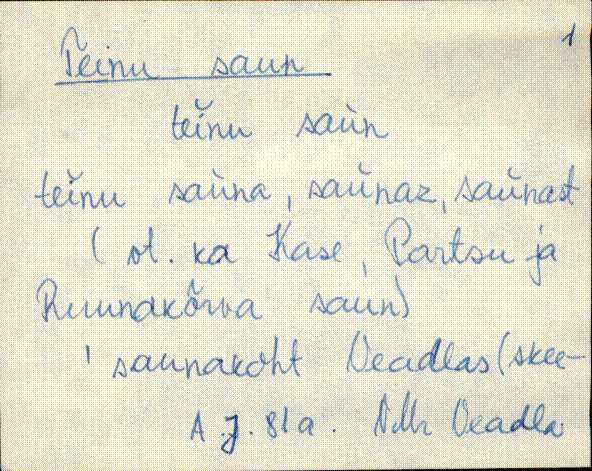 1
Teinu saun
teĭnu saùn
teĭnu saùna, saŭnaz, saŭnast
(vt. ka Kase, Partsu ja
Ruunakõrva saun)
' saunakoht Veadlas (skee-
A. J. 81a. Veadla